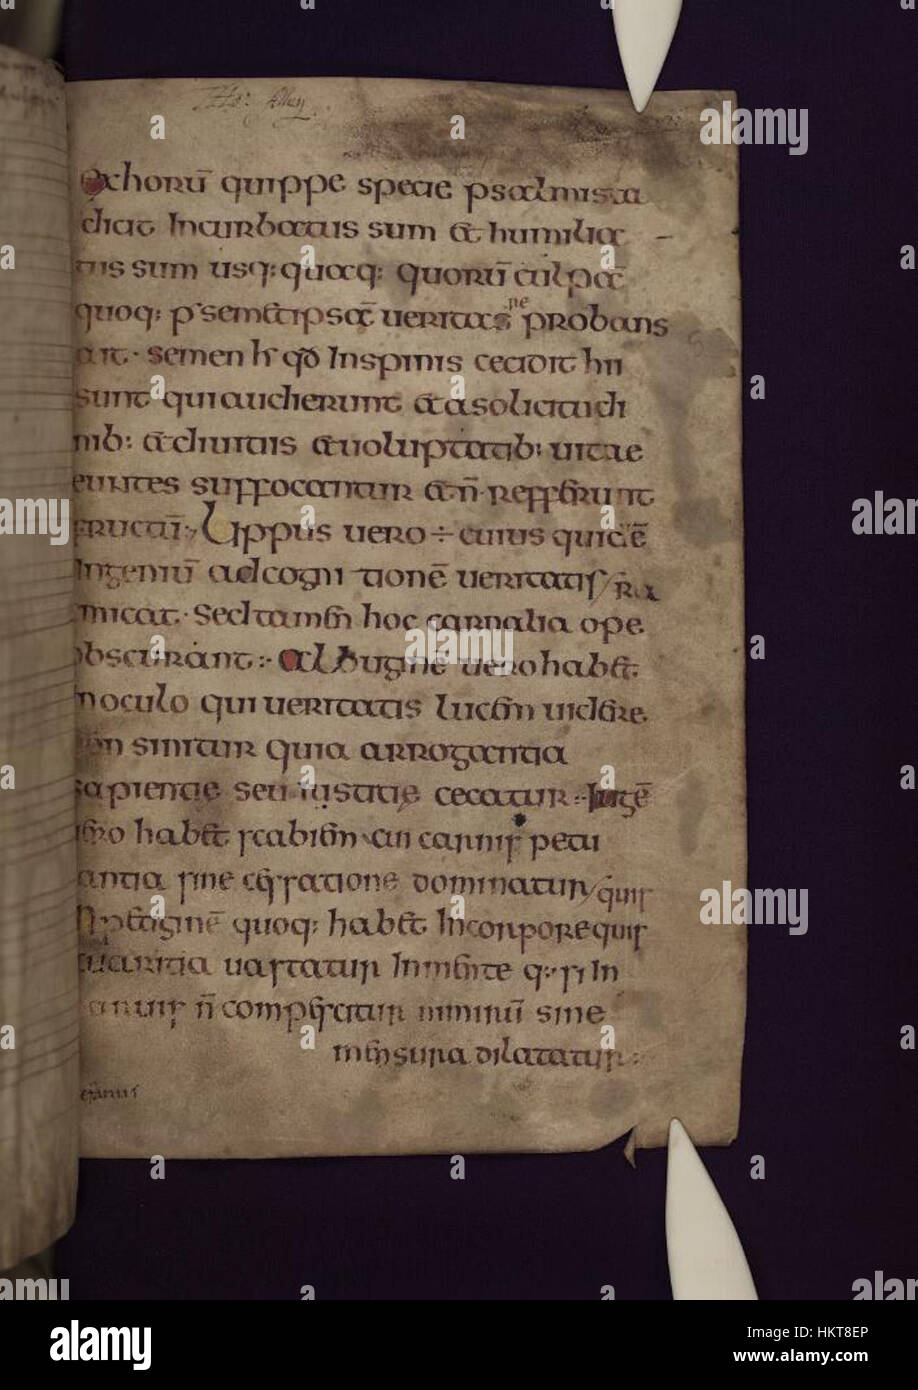 Tho: Allen
exhorū quippe specie psalmista
dicit Incurbatus sum & humilia
tus sum usq: quaq: quorū culpā
quoq: p semetipsā veritas
ne
probans
ait · semen h̄ qđ Inspinis cecidit hii
sunt qui audierunt & a solicitudi
nib: & divitiis & voluptatib: vitae
euntes suffocantur & n̄ · refferunt
fructū: Lippus vero ÷ cuius quidē
Ingeniū ad cogni tionē veritatis / &
micat · sed tamen hoc carnalia ope
obscurant :· albuginē vero habet
Inoculo qui veritatis lucem videre
non sinitur quia arrogantia
sapientie seu iustitie cecatur :· Iugē
vero habet scabiem cui carnis petu
lantia sine cessatione dominatur /
Inpetiginē quoq: habet Incorpore quis
quis avaritia vastatur Inmente q: si In
parvis n̄ compescitur nimirū sine
mensura dilatatur :
a
alamy
Image ID: HKT8EP
www.alamy.com